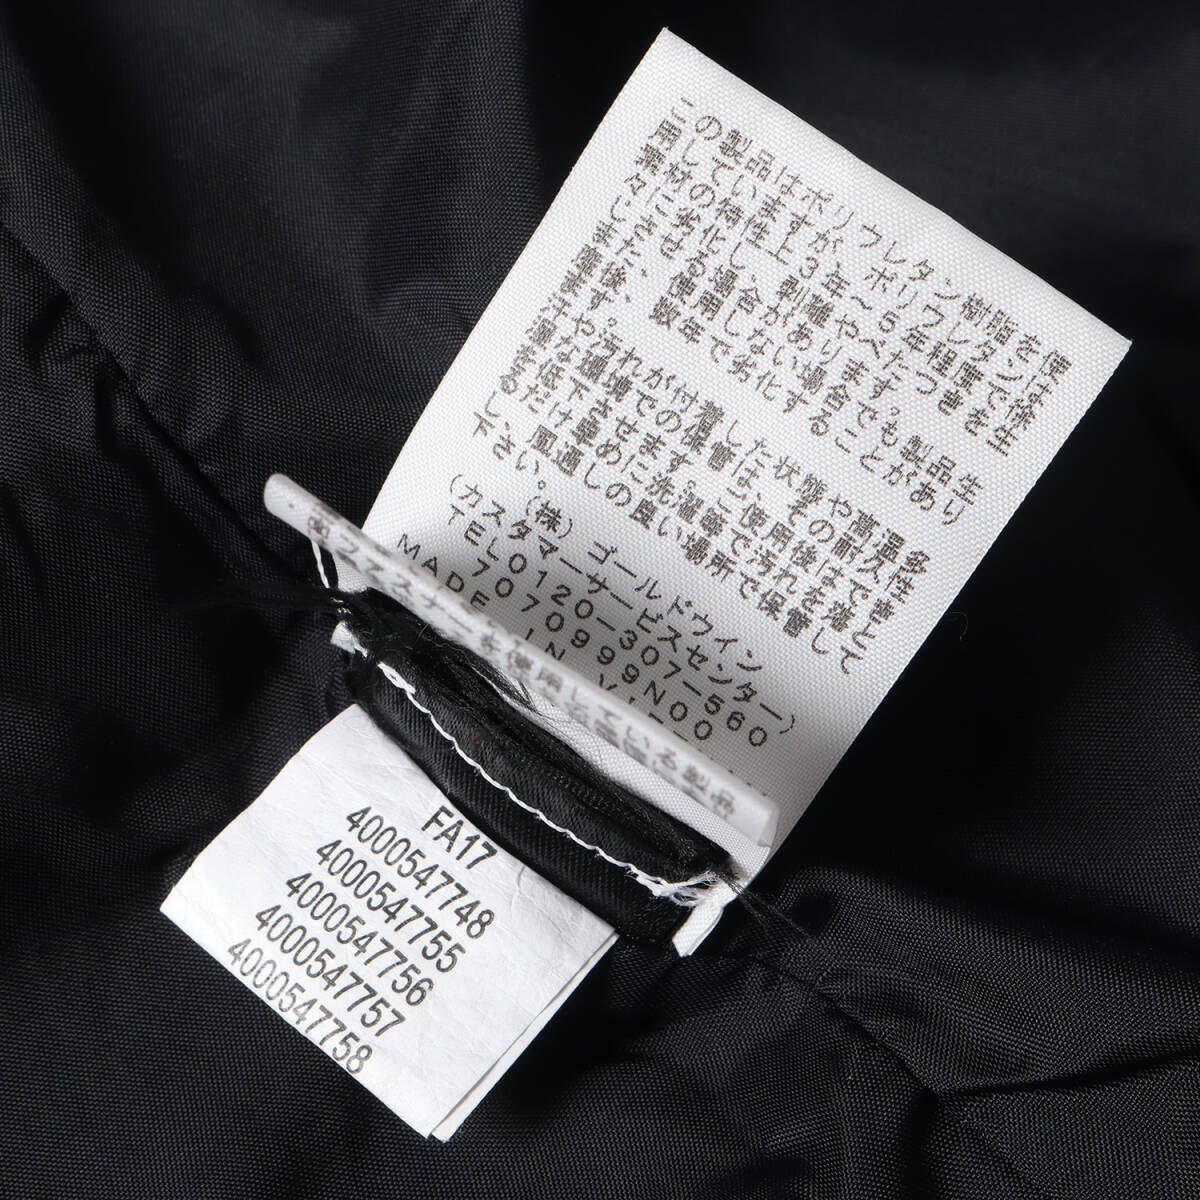 この製品はポリウレタン樹脂を使
用していますが、ポリウレタンは
素材の特性上3年～5年程度で徐
々に劣化し、剥離やべたつきを生
じさせる場合があります。
また、使用しない場合でも製品生
産後、数年で劣化することがあり
ます。汚れが付着した状態や高温多
湿な環境での保管は、その耐久性
を低下させます。ご使用後はできる
だけ早めに洗濯等で汚れを落とし、
風通しの良い場所で保管して
下さい。
(株)ゴールドウイン
(カスタマーサービスセンター)
TEL0120-307-560
7070999N00
MADE IN
ファスナーを使用している製品
FA17
4000547748
4000547755
4000547756
4000547757
4000547758